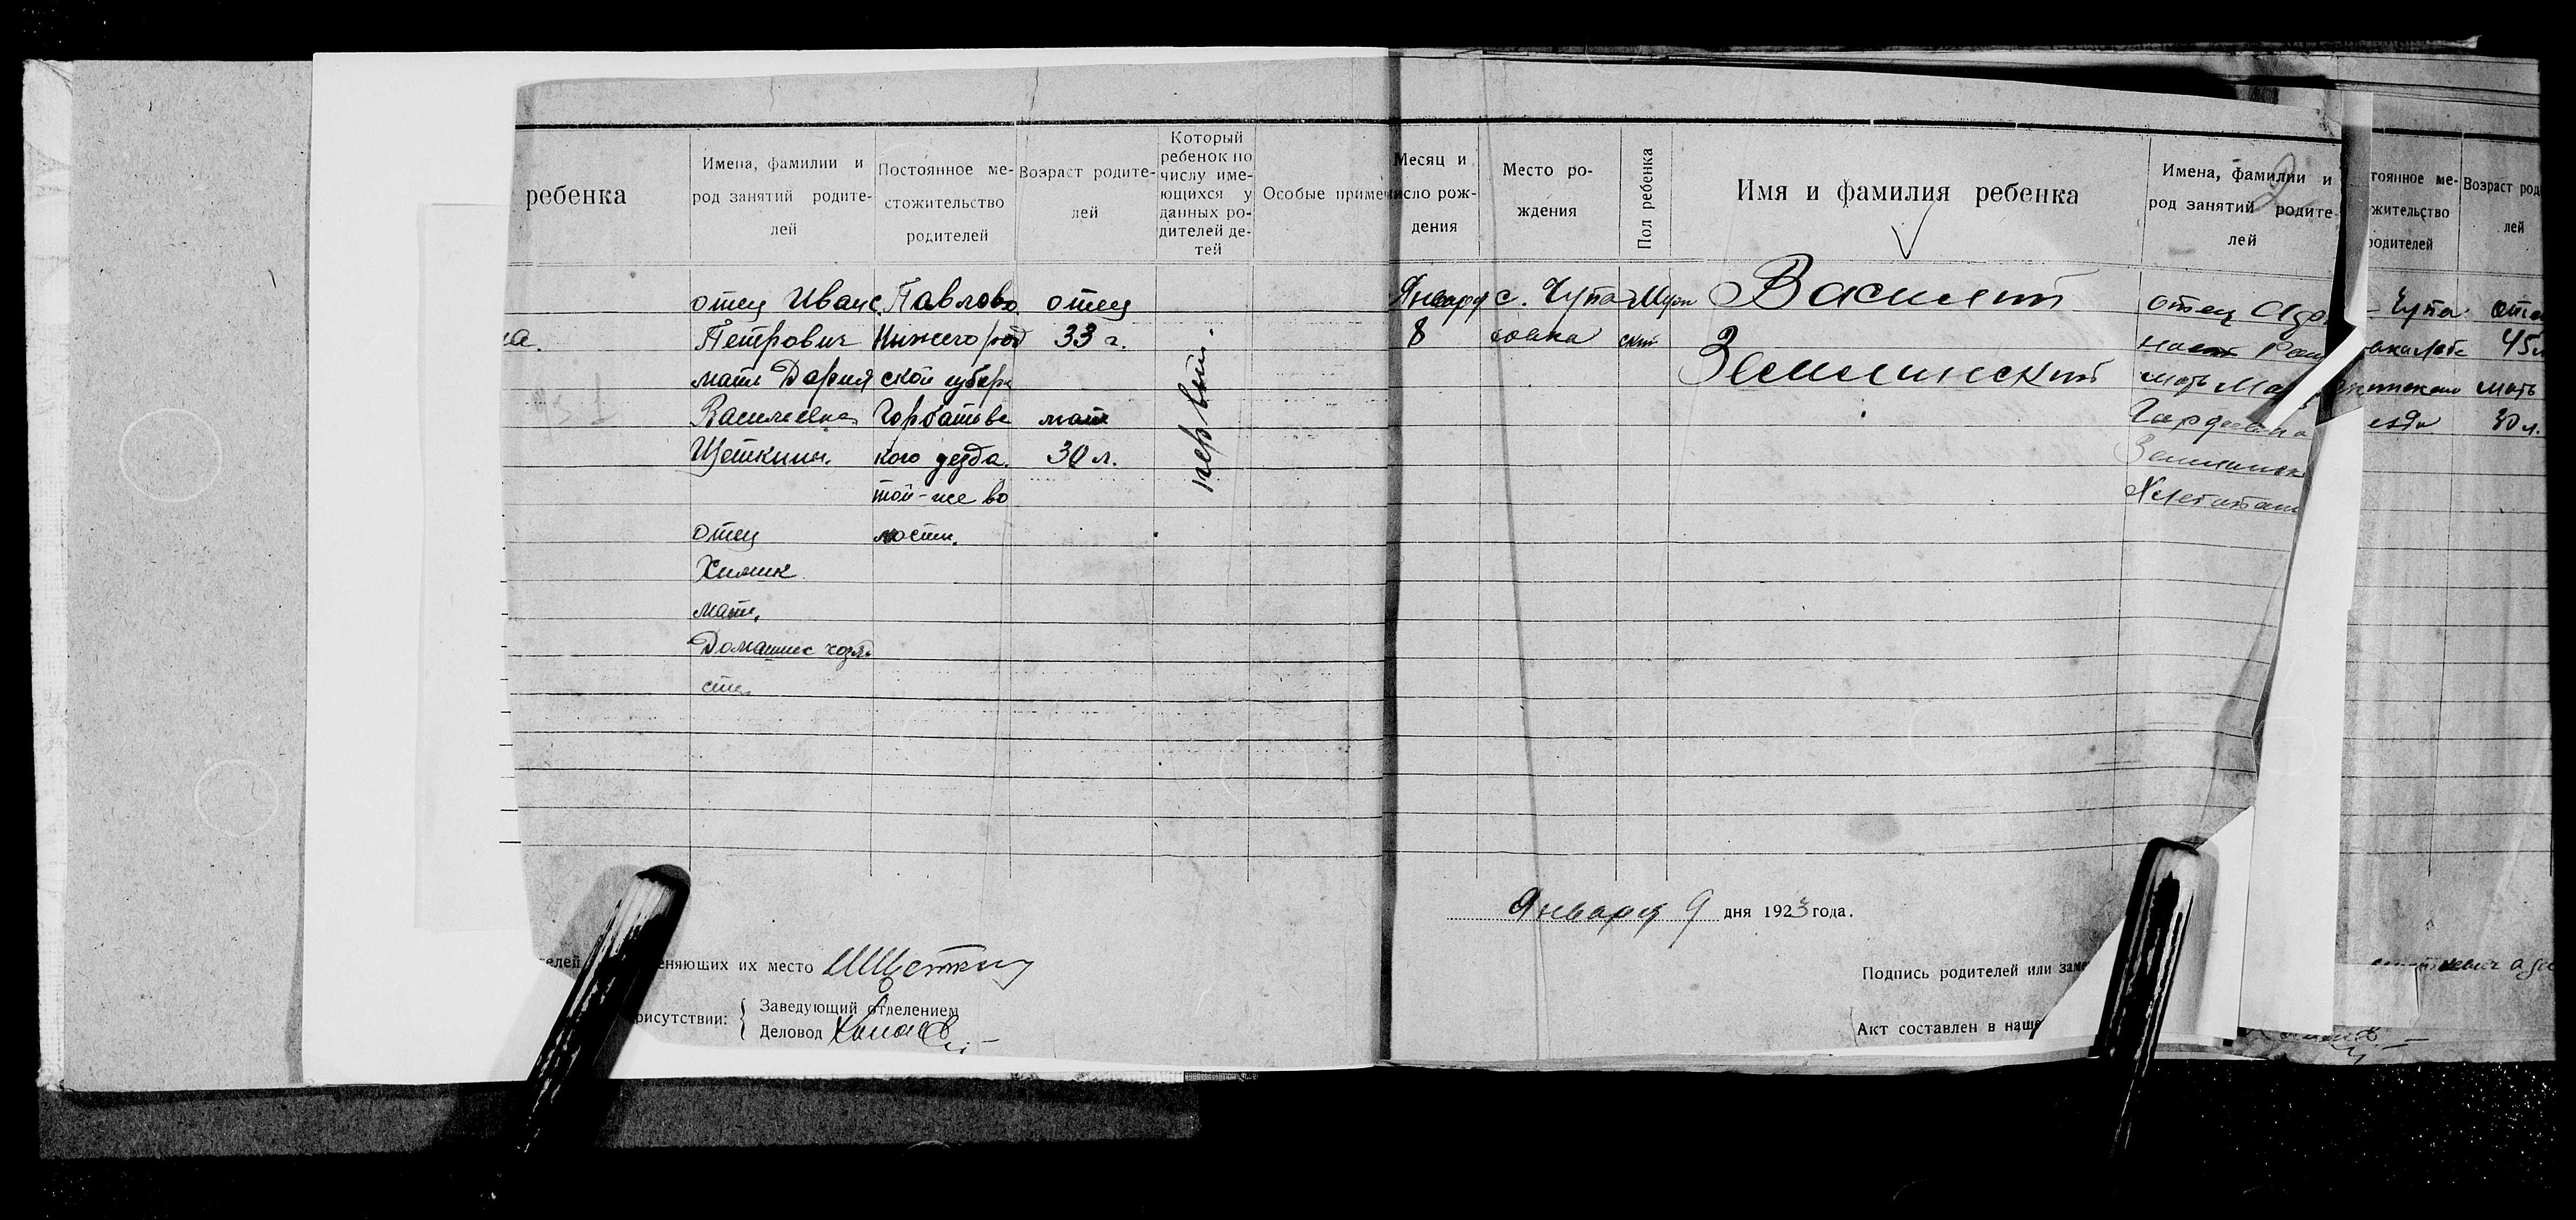 ребенка
Имена, фамилии и
род занятий родите-
лей
Постоянное ме-
стожительство
родителей
Возраст родите-
лей
Который
ребенок по
числу име-
ющихся у
данных ро-
дителей де-
тей
Особые примеч
а.
отец Иван
Петрович
мать Дария
Васильевна
Щеткины.
отец
Химик
мать
Домашнее хозяй
ств.
с. Павлово
Нижегород
ской губерн
Горбатовс
кого уезда.
той-же во
лости.
отец
33 г.
мать
30 л.
первый.
еняющих их место
рисутствии:
Заведующий отделением
Деловод
Месяц и
число рож-
дения
Место ро-
ждения
Пол ребенка
Имя и фамилия ребенка
Имена, фамилии и
род занятий родите-
лей
2
Января
8
с. Чупа
Муж
ской
Василий
Землинский
отец
мать
Гордеевна
тоянное ме-
жительство
родителей
Возраст род
лей
Чупа
езда
отец
45
мать
30 л.
Января 9 дня 1923 года.
Подпись родителей или заме
Акт составлен в наше